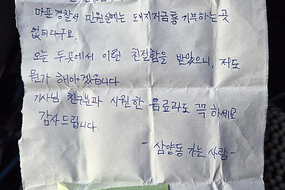 마포경찰서 민원실에는 돼지저금통 기부하는 곳
없더라구요.
오늘 두곳에서 이런 친절함을 받았으니, 저도
뭔가 해야겠습니다.
기사님 친구분과 시원한 음료라도 꼭 하세요
감사드립니다.
- 삼양동 가는 사람 -